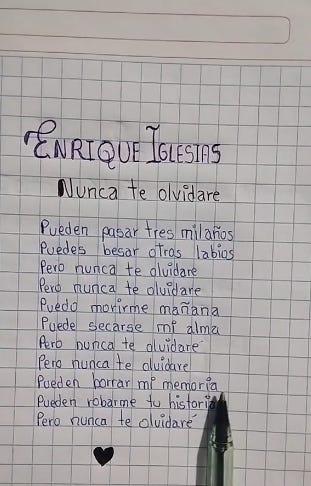 ENRIQUE IGLESIAS
Nunca te olvidare
Pueden pasar tres mil años
Puedes besar otros labios
Pero nunca te olvidare
Pero nunca te olvidare
Puedo morirme mañana
Puede secarse mi alma
Pero nunca te olvidare
Pero nunca te olvidare
Pueden borrar mi memoria
Pueden robarme tu historia
Pero nunca te olvidaré